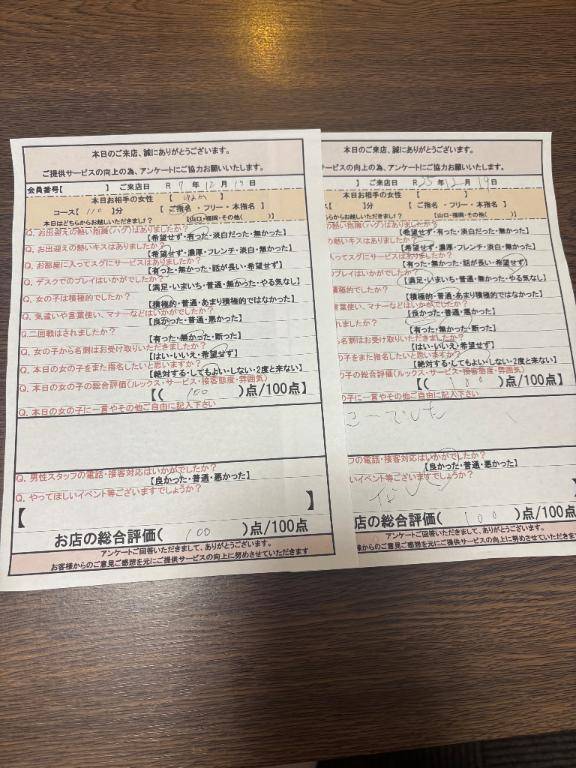 本日のご来店、誠にありがとうございます。
ご提供サービスの向上の為、アンケートにご協力お願いいたします。
会員番号【 】 ご来店日 R 7 年 12 月 19 日
本日お相手の女性 【 】
コース【 110 】分 【 ご指名 ・ フリー ・ 本指名 】
本日はどちらからお越しいただきました？ 【山口・福岡・その他( )】
Q. お出迎えの熱い抱擁(ハグ)はありましたか？
【希望せず・有った・淡白だった・無かった】
Q. お出迎えの熱いキスはありましたか？
【希望せず・濃厚・フレンチ・淡白・無かった】
Q. お部屋に入ってスグにサービスはありましたか？
【有った・無かった・話が長い・希望せず】
Q. デスクでのプレイはいかがでしたか？
【満足・いまいち・普通・無かった・やる気なし】
Q. 女の子は積極的でしたか？
【積極的・普通・あまり積極的ではなかった】
Q. 気遣いや言葉使い、マナーなどはいかがでしたか？
【良かった・普通・悪かった】
Q. 二回戦はされましたか？
【有った・無かった・断った】
Q. 女の子から名刺はお受け取りいただきましたか？
【はい・いいえ・希望せず】
Q. 本日の女の子をまた指名したいと思いますか？
【絶対する・してもよい・しない・2度と来ない】
Q. 本日の女の子の総合評価(ルックス・サービス・接客態度・雰囲気)
【( 100 )点/100点】
Q. 本日の女の子に一言やその他ご自由に記入下さい
Q. 男性スタッフの電話・接客対応はいかがでしたか？
【良かった・普通・悪かった】
Q. やってほしいイベント等ございますでしょうか？
【 】
お店の総合評価( 100 )点/100点
アンケートご回答いただきまして、ありがとうございます。
お客様からのご意見ご感想を元にご提供サービスの向上に努めさせていただきます
本日のご来店、誠にありがとうございます。
サービスの向上の為、アンケートにご協力お願いいたします。
】 ご来店日 R 年 12 月 19 日
本日お相手の女性 【 】
】分 【 ご指名 ・ フリー ・ 本指名 】
どちらからお越しいただきました？ 【山口・福岡・その他( )】
の熱い抱擁(ハグ)はありましたか？
【希望せず・有った・淡白だった・無かった】
の熱いキスはありましたか？
【希望せず・濃厚・フレンチ・淡白・無かった】
入ってスグにサービスはありましたか？
【有った・無かった・話が長い・希望せず】
プレイはいかがでしたか？
【満足・いまいち・普通・無かった・やる気なし】
積極的でしたか？
【積極的・普通・あまり積極的ではなかった】
言葉使い、マナーなどはいかがでしたか？
【良かった・普通・悪かった】
れましたか？
【有った・無かった・断った】
ら名刺はお受け取りいただきましたか？
【はい・いいえ・希望せず】
の子をまた指名したいと思いますか？
【絶対する・してもよい・しない・2度と来ない】
の子の総合評価(ルックス・サービス・接客態度・雰囲気)
【( 100 )点/100点】
の子に一言やその他ご自由に記入下さい
ッフの電話・接客対応はいかがでしたか？
【良かった・普通・悪かった】
いイベント等ございますでしょうか？
店の総合評価( 100 )点/100点
アンケートご回答いただきまして、ありがとうございます。
からのご意見ご感想を元にご提供サービスの向上に努めさせていただきます